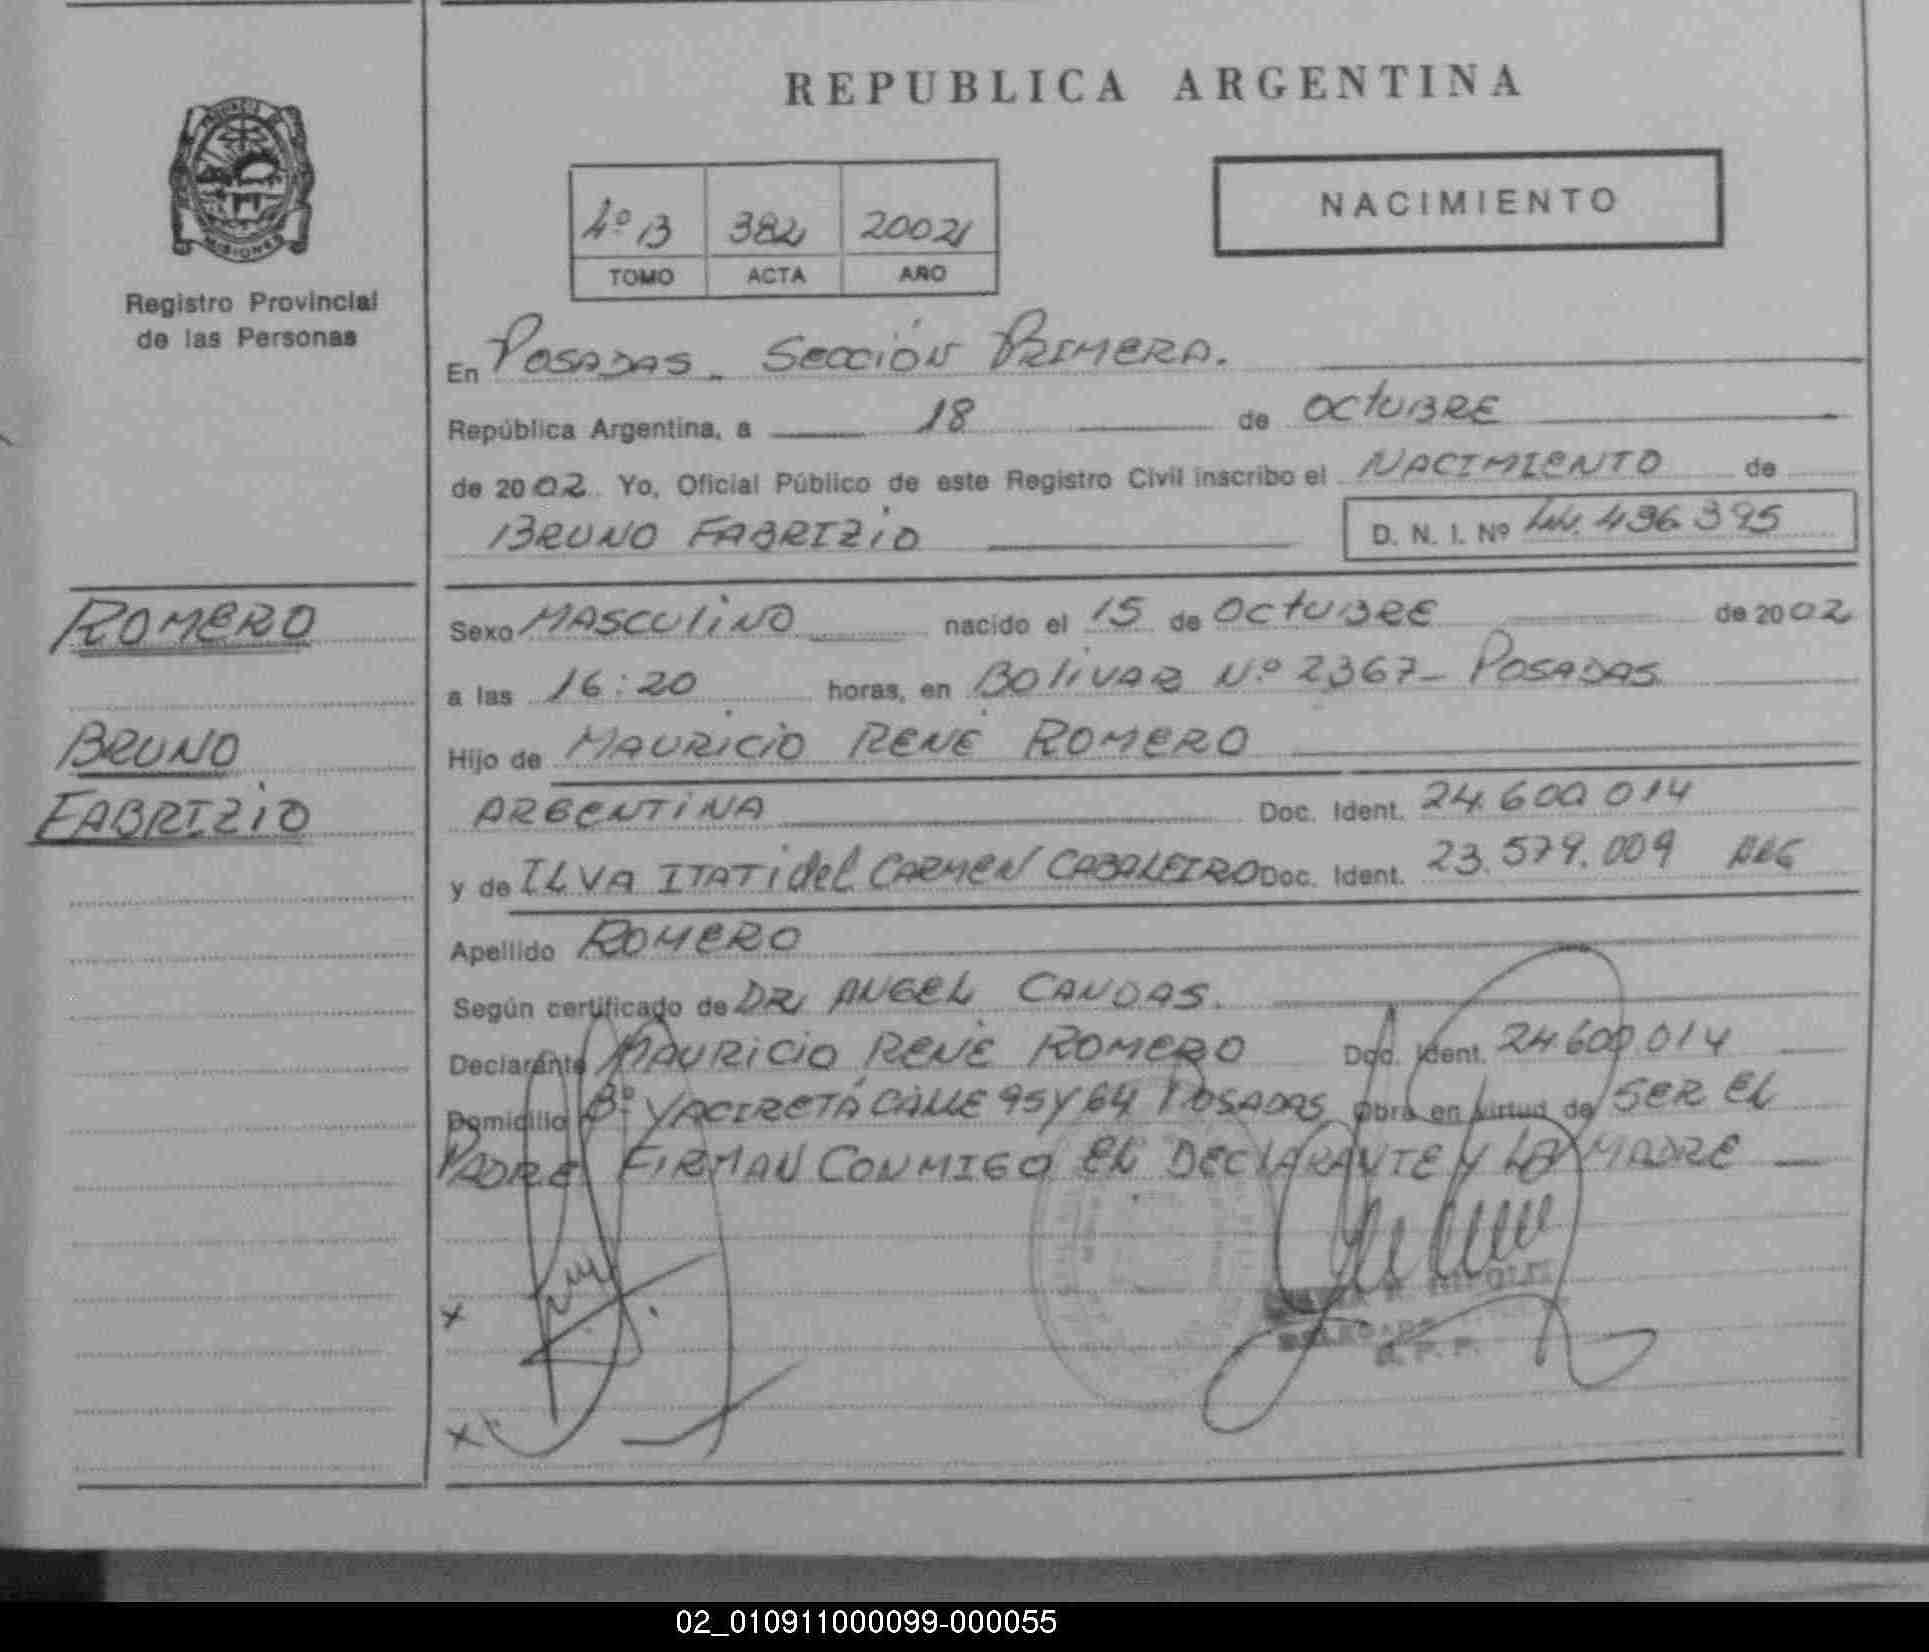 REPUBLICA ARGENTINA
NACIMIENTO
4º B 382 2002
TOMO ACTA AÑO
Registro Provincial
de las Personas
En POSADAS - SECCIÓN PRIMERA.
República Argentina, a 18 de OCTUBRE
de 2002 Yo, Oficial Público de este Registro Civil inscribo el NACIMIENTO de
BRUNO FABRIZIO D. N. I. Nº 44.436.395
ROMERO
Sexo MASCULINO nacido el 15 de OCTUBRE de 2002
a las 16:20 horas, en BOLIVAR Nº 2367 - POSADAS
BRUNO
Hijo de MAURICIO RENÉ ROMERO
FABRIZIO
ARGENTINA Doc. Ident. 24.600.014
y de ILVA ITATI del CARMEN CABALEIRO Doc. Ident. 23.579.009 ARG
Apellido ROMERO
Según certificado de DR. ANGEL CANDAS.
Declarante MAURICIO RENÉ ROMERO Doc. Ident. 24.600.014
Domicilio Bº YACIRETÁ CALLE 95 Y 64 POSADAS Obra en virtud de SER EL
PADRE FIRMAN CONMIGO EL DECLARANTE Y LA MADRE
x
x
R. P. P.
02_010911000099-000055